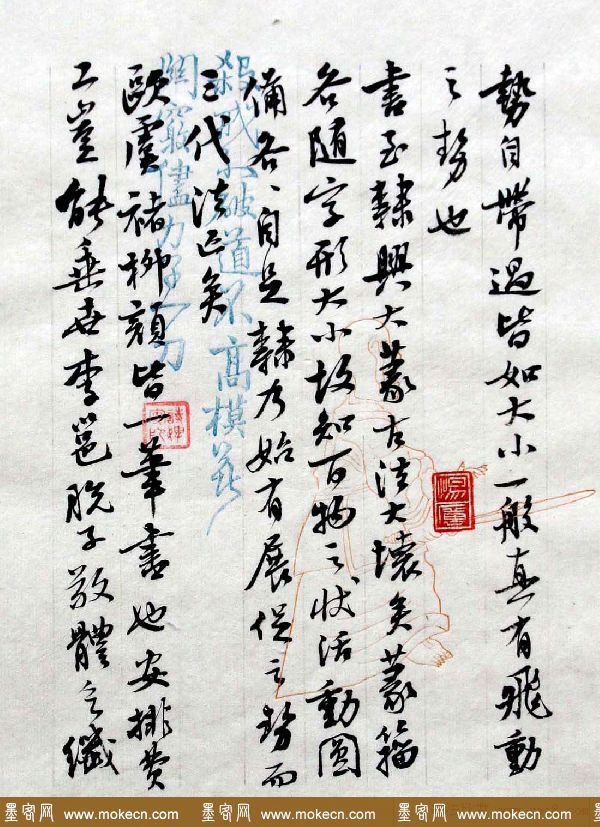 勢自帶過皆如大小一般真有飛動
之勢也
書至隸興大篆古法大壞矣篆籀
各随字形大小故知百物之状活動圓
備各、自足隸乃始有展促之勢而
三代法亡矣
歐虞褚柳顔皆一筆書也安排費
工豈能垂世李邕脱子敬體乏纖
墨客网 www.mokecn.com 墨客网 www.mokecn.com 墨客网 www.mokecn.com 墨客网 www.mokecn.com